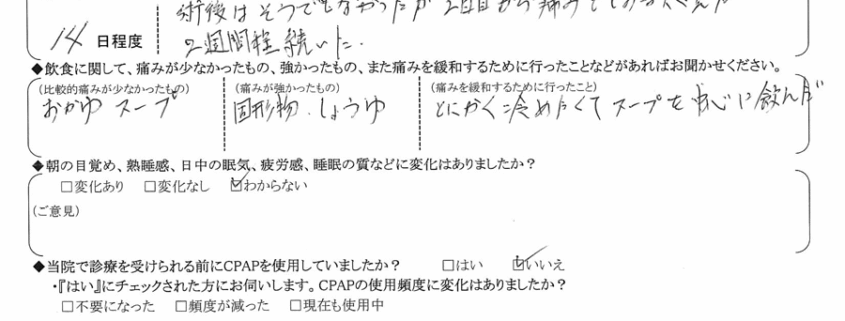 術後はそうでもなかったが2日目から痛み
14 日程度 2週間程続いた.
◆飲食に関して、痛みが少なかったもの、強かったもの、また痛みを緩和するために行ったことなどがあればお聞かせください。
(比較的痛みが少なかったもの) (痛みが強かったもの) (痛みを緩和するために行ったこと)
おかゆ スープ 固形物.しょうゆ とにかく冷めたくてスープを中心に飲んだ
◆朝の目覚め、熟睡感、日中の眠気、疲労感、睡眠の質などに変化はありましたか？
□変化あり □変化なし ☑わからない
(ご意見)
◆当院で診療を受けられる前にCPAPを使用していましたか？ □はい ☑いいえ
・『はい』にチェックされた方にお伺いします。CPAPの使用頻度に変化はありましたか？
□不要になった □頻度が減った □現在も使用中